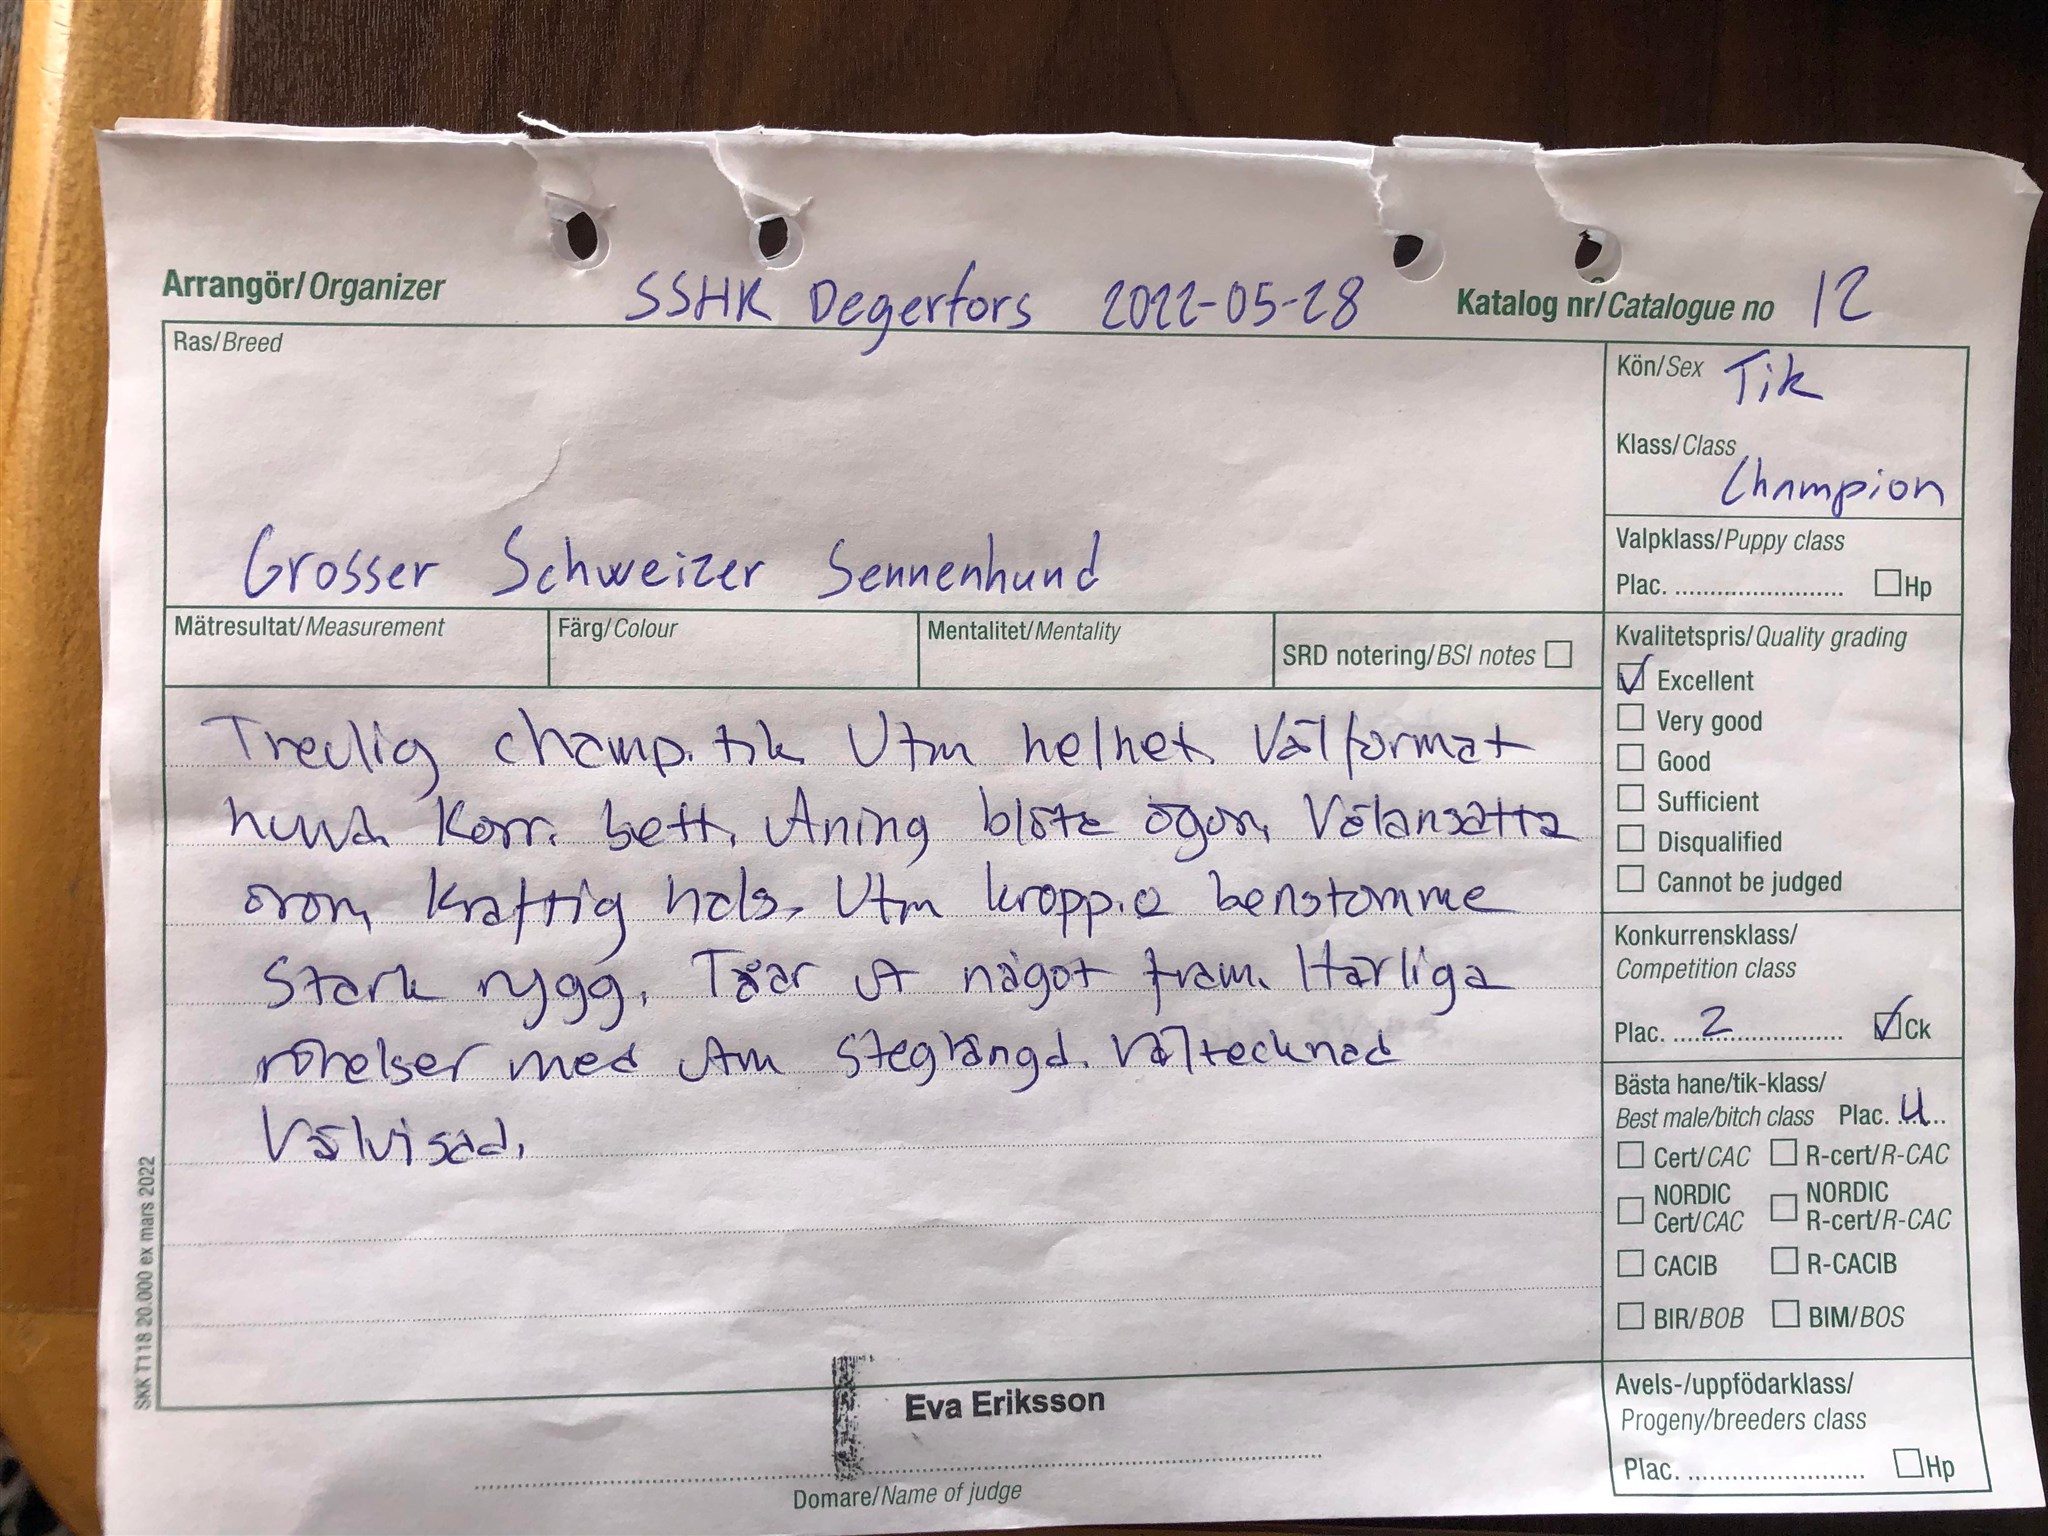 Arrangör/Organizer SSHK Degerfors 2022-05-28 Katalog nr/Catalogue no 12
Ras/Breed
Grosser Schweizer Sennenhund
Kön/Sex Tik
Klass/Class
Champion
Valpklass/Puppy class
Plac. Hp
Mätresultat/Measurement Färg/Colour Mentalitet/Mentality SRD notering/BSI notes
Trevlig champ. tik Utm helhet. Välformat
hund. Korr. bett. Aning blöta ögon. Välansatta
öron. Kraftig hals. Utm kropp.o benstomme
Stark rygg. Tåar ut något fram. Härliga
rörelser med utm steglängd. Vältecknad
Välvisad.
Kvalitetspris/Quality grading
Excellent
Very good
Good
Sufficient
Disqualified
Cannot be judged
Konkurrensklass/
Competition class
Plac. 2 Ck
Bästa hane/tik-klass/
Best male/bitch class Plac. 4
Cert/CAC R-cert/R-CAC
NORDIC Cert/CAC NORDIC R-cert/R-CAC
CACIB R-CACIB
BIR/BOB BIM/BOS
Avels-/uppfödarklass/
Progeny/breeders class
Plac. Hp
Eva Eriksson
Domare/Name of judge
SKK T118 20.000 ex mars 2022